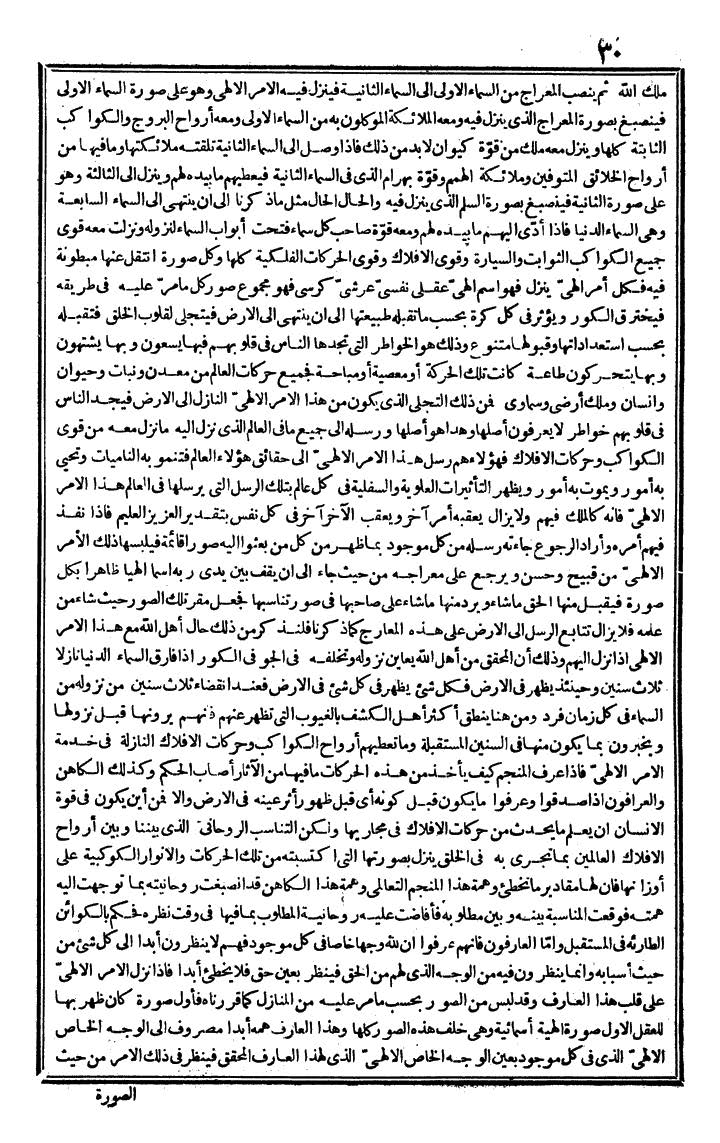 ٣٠
ملك الله ثم ينصب المعراج من السماء الاولى الى السماء الثانية فينزل فيه الامر الالهى وهو على صورة السماء الاولى
فينصبغ بصورة المعراج الذى ينزل فيه ومعه الملائكة الموكلون به من السماء الاولى ومعه أرواح البروج والكواكب
الثابتة كلها وينزل معه ملك من قوة كيوان لابد من ذلك فاذا وصل الى السماء الثانية تلقته ملائكتها وما فيها من
أرواح الخلائق المتوفين وملائكة الهمم وقوة بهرام الذى فى السماء الثانية فيعطيهم ما بيده لهم وينزل الى الثالثة وهو
على صورة الثانية فينصبغ بصورة السلم الذى ينزل فيه والحال الحال مثل ماذكرنا الى ان ينتهى الى السماء السابعة
وهى السماء الدنيا فاذا أدّى اليهم ما بيده لهم ومعه قوة صاحب كل سماء فتحت أبواب السماء لنزوله ونزلت معه قوى
جميع الكواكب الثوابت والسيارة وقوى الافلاك وقوى الحركات الفلكية كلها وكل صورة انتقل عنها مبطونة
فيه فكل أمر الهىّ ينزل فهو اسم الهىّ عقلى نفسىّ عرشىّ كرسى فهو مجموع صور كل مامرّ عليه فى طريقه
فيخترق الكور ويؤثر فى كل كرة بحسب ماتقبله طبيعتها الى ان ينتهى الى الارض فيتجلى لقلوب الخلق فتقبله
بحسب استعداداتها وقبولها متنوع وذلك هو الخواطر التى تجدها الناس فى قلوبهم فبها يسعون وبها يشتهون
وبها يتحركون طاعة كانت تلك الحركة أو معصية أو مباحة فجميع حركات العالم من معدن ونبات وحيوان
وانسان وملك أرضى وسماوى فمن ذلك التجلى الذى يكون من هذا الامر الالهىّ النازل الى الارض فيجد الناس
فى قلوبهم خواطر لا يعرفون أصلها وهذا هو أصلها ورسله الى جميع مافى العالم الذى نزل اليه مانزل معه من قوى
الكواكب وحركات الافلاك فهؤلاء هم رسل هذا الامر الالهىّ الى حقائق هؤلاء العالم فتنمو به الناميات وتحيى
به أمور ويموت به أمور ويظهر التأثيرات العلوية والسفلية فى كل عالم بتلك الرسل التى يرسلها فى العالم هذا الامر
الالهىّ فانه كالملك فيهم ولايزال يعقبه أمر آخر ويعقب الآخر آخر فى كل نفس بتقدير العزيز العليم فاذا نفذ
فيهم أمره وأراد الرجوع جاءته رسله من كل موجود بما ظهر من كل من بعثوا اليه صورا قائمة فيلبسها ذلك الأمر
الالهىّ من قبيح وحسن ويرجع على معراجه من حيث جاء الى ان يقف بين يدى ربه اسما الهيا ظاهرا بكل
صورة فيقبل منها الحق ماشاء ويرد منها ماشاء على صاحبها فى صور تناسبها فجعل مقر تلك الصور حيث شاء من
علمه فلا يزال تتابع الرسل الى الارض على هذه المعارج كماذكرنا فلنذكر من ذلك حال أهل الله مع هذا الامر
الالهى اذا نزل اليهم وذلك أن المحقق من أهل الله يعاين نزوله وتخلفه فى الجو فى الكور اذا فارق السماء الدنيا نازلا
ثلاث سنين وحينئذ يظهر فى الارض فكل شئ يظهر فى كل شئ فى الارض فعند انقضاء ثلاث سنين من نزوله من
السماء فى كل زمان فرد ومن هنا ينطق أكثر أهل الكشف بالغيوب التى تظهر عنهم فنهم يرونها قبل نزولها
ويخبرون بما يكون منها فى السنين المستقبلة وماتعطيهم أرواح الكواكب وحركات الافلاك النازلة فى خدمة
الامر الالهىّ فاذا عرف المنجم كيف يأخذ من هذه الحركات مافيها من الآثار أصاب الحكم وكذلك الكاهن
والعرافون اذا صدقوا وعرفوا مايكون قبل كونه أى قبل ظهور أثر عينه فى الارض والا فمن أين يكون فى قوة
الانسان ان يعلم مايحدث من حركات الافلاك فى مجاريها ولكن التناسب الروحانىّ الذى بيننا وبين أرواح
الافلاك العالمين بما تجرى به فى الخلق ينزل بصورتها التى اكتسبته من تلك الحركات والانوار الكوكبية على
أوزانها فان لها مقادير ماتخطئ وهمة هذا المنجم التعالمى وهمة هذا الكاهن قد انصبغت روحانيته بما توجهت اليه
همته فوقعت المناسبة بينه وبين مطلوبه فأفاضت عليه روحانية المطلوب بما فيها فى وقت نظره فحكم بالكوائن
الطارئه فى المستقبل وامّا العارفون فانهم عرفوا ان لله وجها خاصا فى كل موجود فهم لاينظرون أبدا الى كل شئ من
حيث أسبابه وانما ينظرون فيه من الوجه الذى لهم من الحق فينظر بعين حق فلا يخطئ أبدا فاذا نزل الامر الالهىّ
على قلب هذا العارف وقد لبس من الصور بحسب مامر عليه من المنازل كماقررناه فأول صورة كان ظهر بها
للعقل الاول صورة الهية أسمائية وهى خلف هذه الصور كلها وهذا العارف همه أبدا مصروف الى الوجه الخاص
الالهىّ الذى فى كل موجود بعين الوجه الخاص الالهىّ الذى لهذا العارف المحقق فينظر فى ذلك الامر من حيث
الصورة